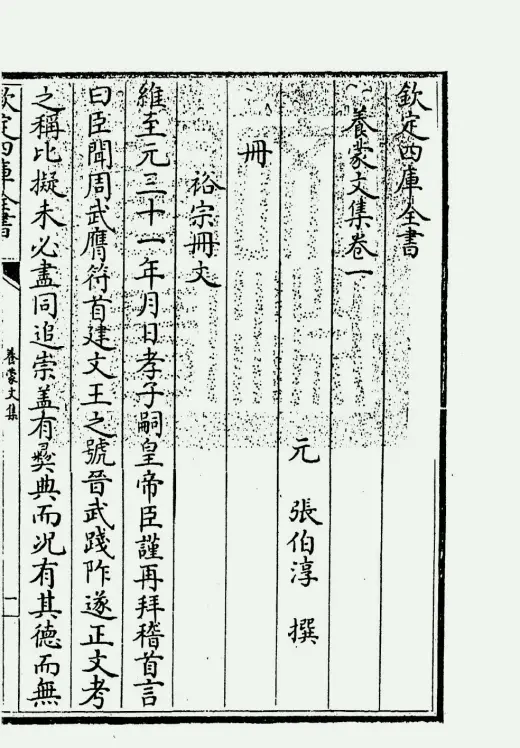 欽定四庫全書
養蒙文集卷一
元 張伯淳 撰
冊
裕宗冊文
維至元三十一年月日孝子嗣皇帝臣謹再拜稽首言
曰臣聞周武膺符首建文王之號晉武踐阼遂正文考
之稱比擬未必盡同追崇盖有彛典而况有其德而無
欽定四庫全書
養蒙文集
一